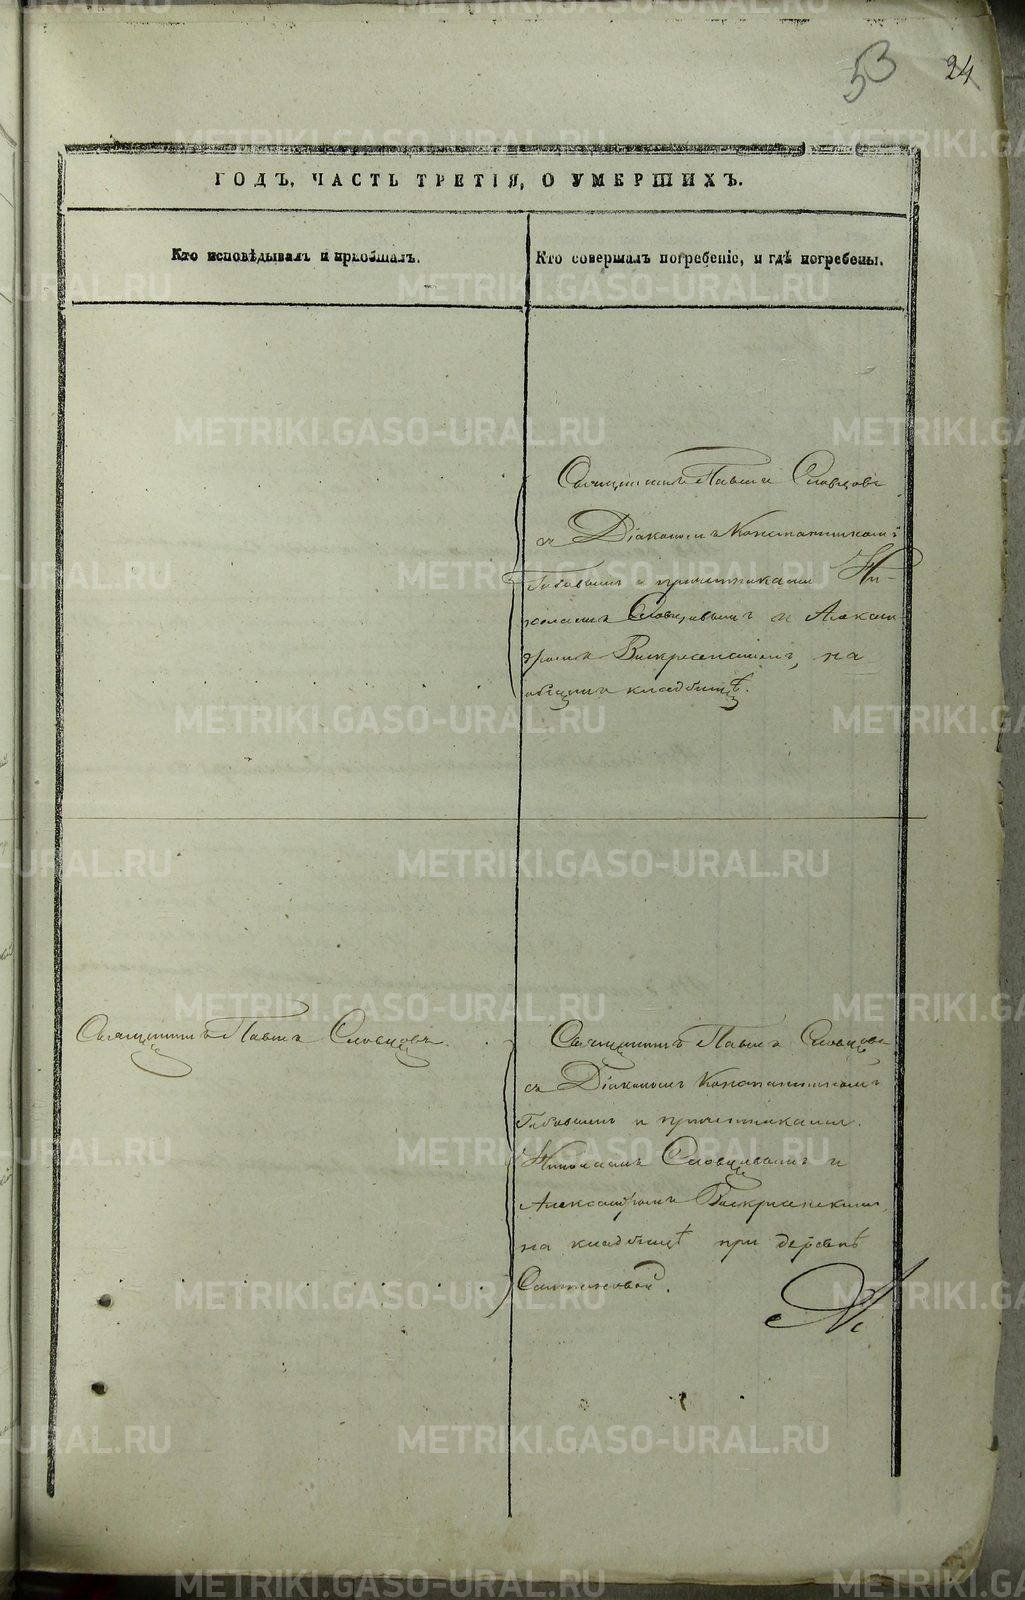 53 24
ГОДЪ, ЧАСТЬ ТРЕТІЯ, О УМЕРШИХЪ.
Кто исповѣдывалъ и пріобщалъ.
Кто совершалъ погребеніе, и гдѣ погребены.
Священникъ Павелъ Словцовъ
съ Діакономъ Константиномъ
и причетниками Ни-
колаемъ Словцовымъ и Алексан-
дромъ Воскресенскимъ, на
общемъ кладбищѣ.
Священникъ Павелъ Словцовъ.
Священникъ Павелъ Словцовъ
съ Діакономъ Константиномъ
и причетниками
Николаемъ Словцовымъ и
Александромъ Воскресенскимъ,
на кладбищѣ при деревнѣ
METRIKI.GASO-URAL.RU